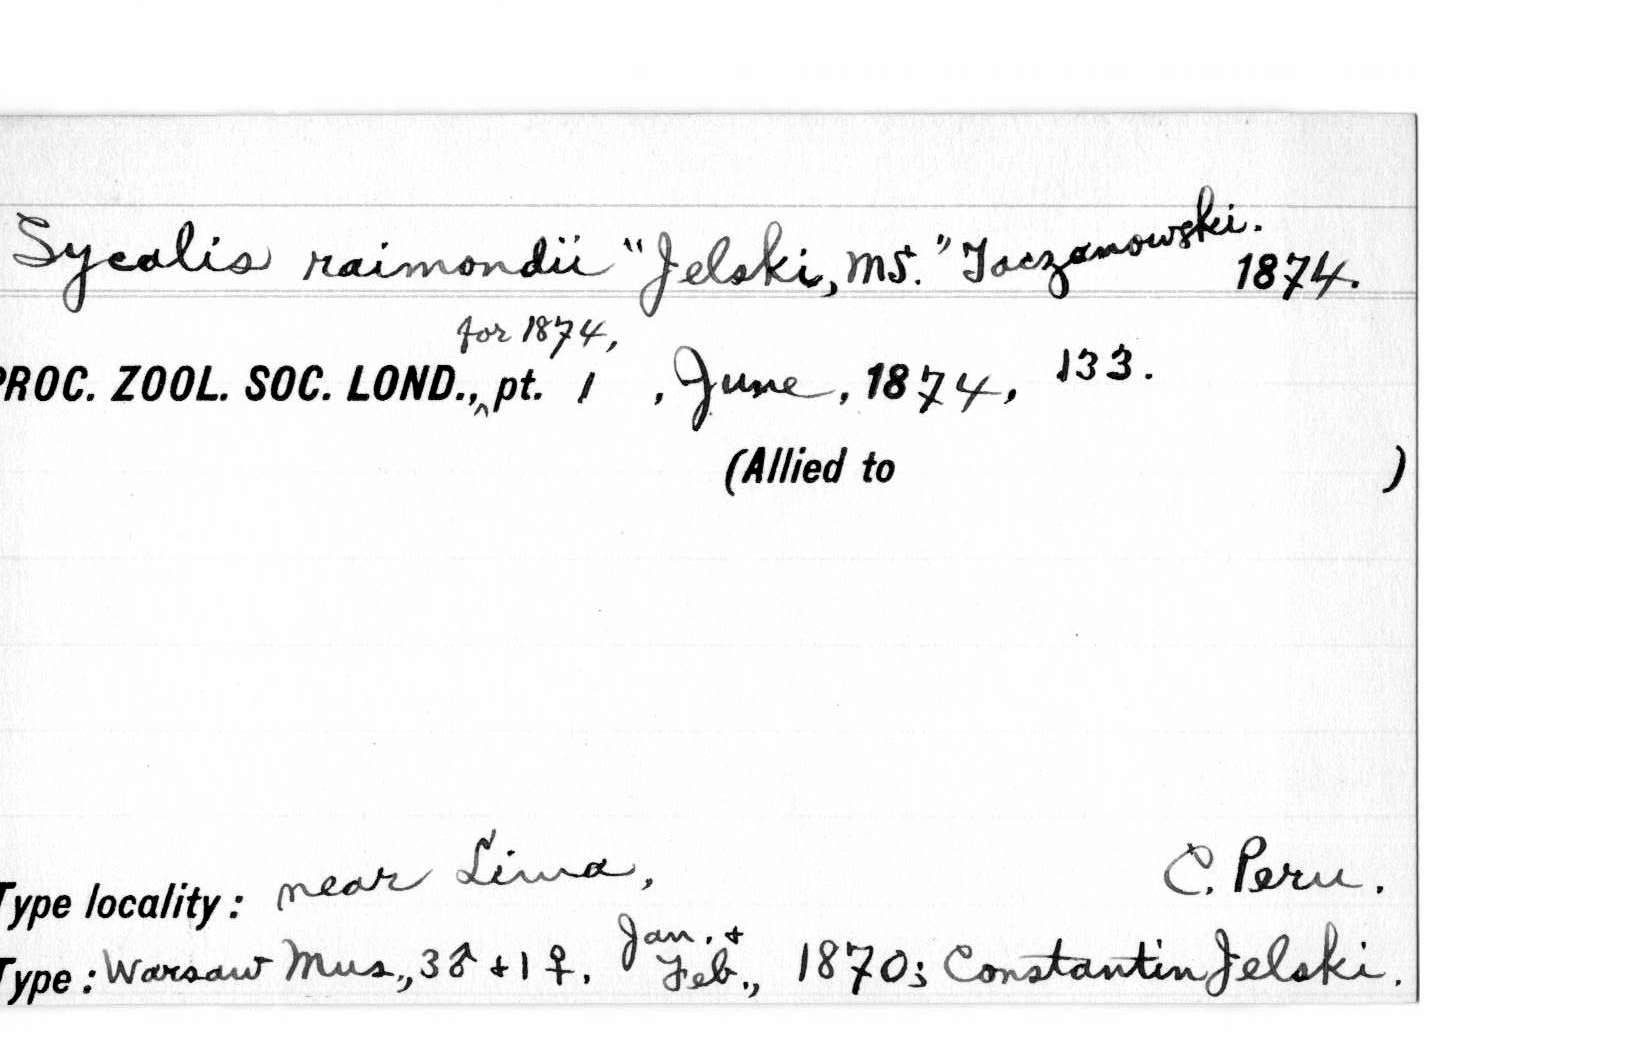 Sycalis raimondii "Jelski, MS." Taczanowski.
1874.
for 1874,
PROC. ZOOL. SOC. LOND., pt. 1, June, 1874, 133.
(Allied to )
Type locality: near Lima, C. Peru.
Jan. +
Type: Warsaw Mus., 3♂ + 1♀, Feb., 1870; Constantin Jelski.